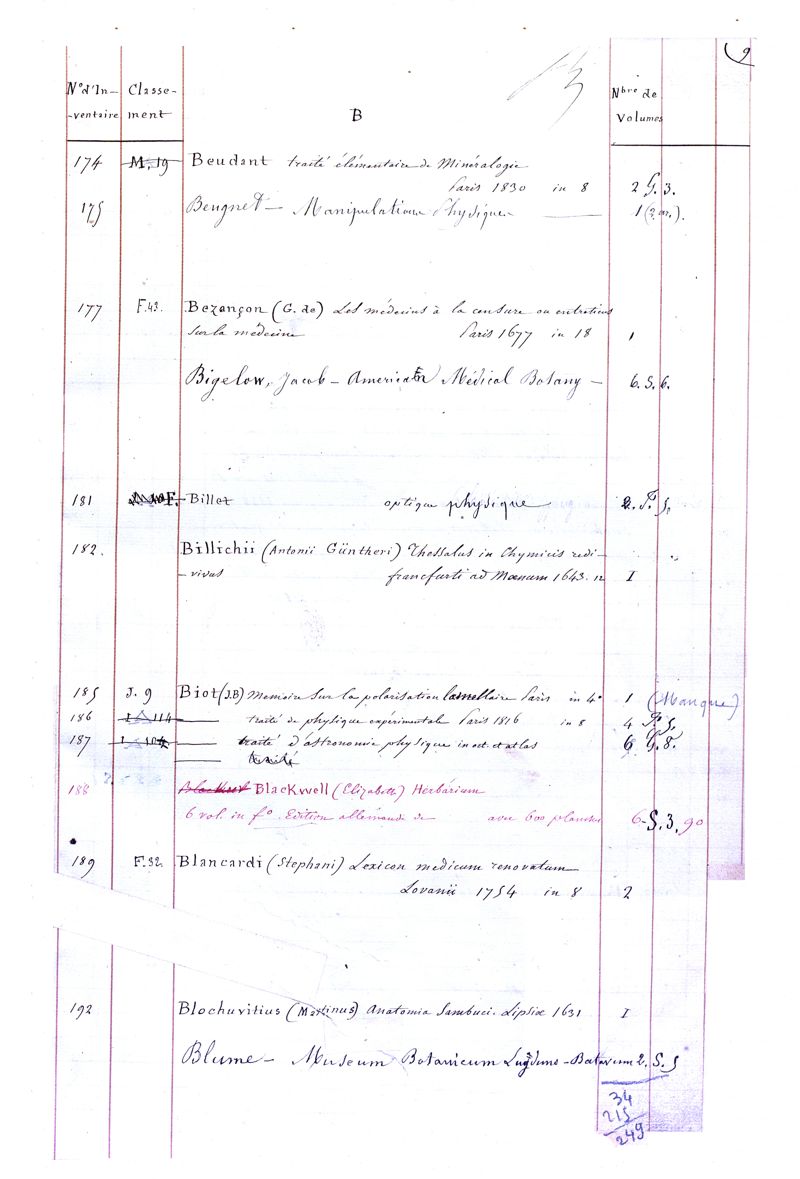 9
13
N° d'In- Classe- Nbre de
-ventaire ment B Volumes
174 M. 19 Beudant traité élémentaire de Minéralogie
Paris 1830 in 8 2 G. 3.
175 Beugnet — Manipulations Physique — 1
177 F. 43. Bezançon (G. de) Les médecins à la censure ou entretiens
sur la médecine Paris 1677 in 18 1
Bigelow, Jacob — American Médical Botany — 6. S. 6.
181 F. Billet optique physique 2. F. 5.
182. Billichii (Antonii Güntheri) Thessalus in Chymicis redi-
-vivus francfurti ad Mœnum 1643. 12 I
185 J. 9 Biot (J.B) Memoire sur la polarisation lamellaire Paris in 4° 1 (Manque)
186 I 114 — traité de physique expérimentale Paris 1816 in 8 4 F. 5.
187 I 104 — traité d'astronomie physique in oct. et atlas 6 G. 8.
— traité
188 Blackwell (Elizabeth) Herbárium
6 vol. in f° Edition allemande de avec 600 planches 6 S. 3. 90
189 F. 32. Blancardi (Stephani) Lexicon medicum renovatum
Lovanii 1754 in 8 2
192 Blochuvitius (Martinus) Anatomia Sambuci. Lipsiæ 1631 I
Blume — Museum Botanicum Lugduno-Batavum 2. S. 5
34
215
249